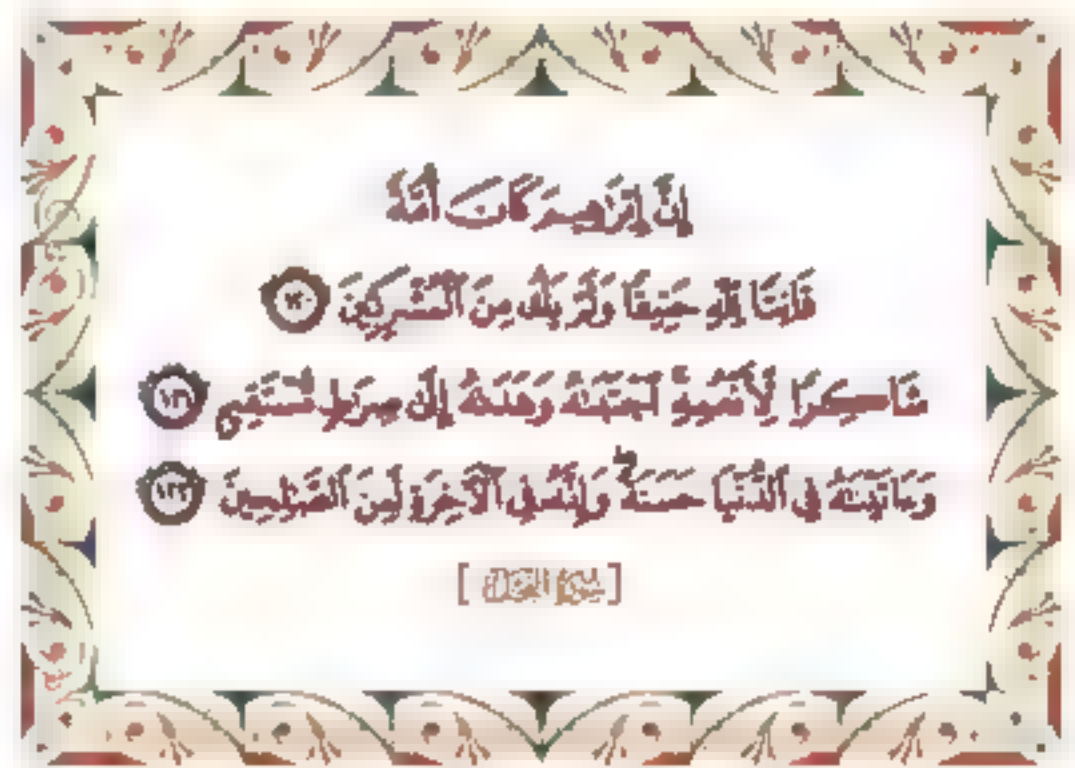 إِنَّ إِبْرَٰهِيمَ كَانَ أُمَّةً
قَانِتًا لِّلَّهِ حَنِيفًا وَلَمْ يَكُ مِنَ ٱلْمُشْرِكِينَ ١٢٠
شَاكِرًا لِّأَنْعُمِهِ ۚ ٱجْتَبَىٰهُ وَهَدَىٰهُ إِلَىٰ صِرَٰطٍ مُّسْتَقِيمٍ ١٢١
وَءَاتَيْنَٰهُ فِى ٱلدُّنْيَا حَسَنَةً ۖ وَإِنَّهُۥ فِى ٱلْـَٔاخِرَةِ لَمِنَ ٱلصَّٰلِحِينَ ١٢٢
[سورة النحل]